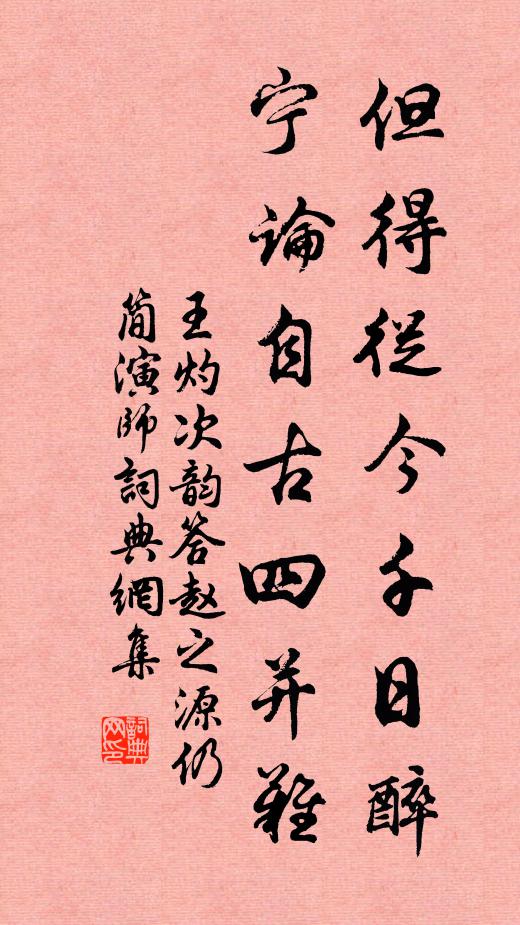 但得從今千日醉
宁論自古四并難
王灼次韵答赵之源仍
简演師詞典網集
詞典
网印